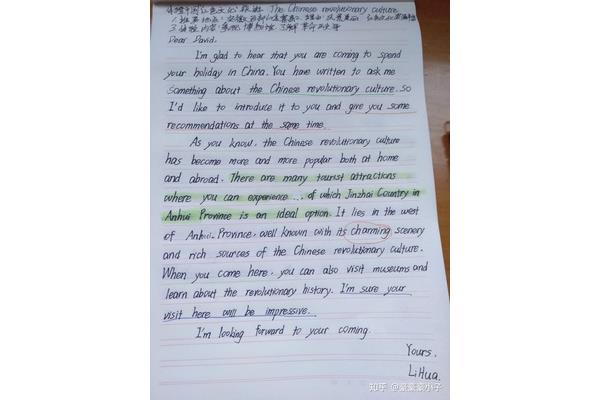 体验中国红色文化旅游 The Chinese revolutionary culture
1.推荐地点:安徽
3.体验内容:参观博物馆,了解革命历史等
Dear David.
I'm glad to hear that you are coming to spend
your holiday in China. You have written to ask me
something about the Chinese revolutionary culture. So
I'd like to introduce it to you and give you some
recommendations at the same time.
As you know, the Chinese revolutionary culture
has become more and more popular both at home
and abroad. There are many tourist attractions
where you can experience... of which Jinzhai Country in
Anhui Province is an ideal option. It lies in the west
of Anhui. Province, well known with its charming scenery
and rich sources of the Chinese revolutionary culture.
When you come here, you can also visit museums and
learn about the revolutionary history. I'm sure your
visit here will be impressive.
I'm looking forward to your coming.
Yours.
LiHua.
知乎